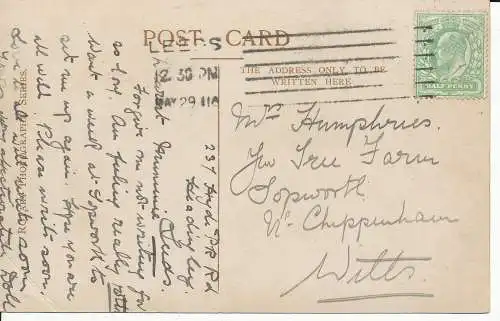 POST CARD
THE ADDRESS ONLY TO BE
WRITTEN HERE
LEEDS
12 30 PM
MAY 29 11
HALF PENNY
Mrs Humphries.
Yew Tree Farm
Sopworth
Nr. Chippenham
Wilts.
237 Hyde Pk Rd
Headingley.
Leeds.
Dearest Mummie
Forgive me not writing for
so long. Am feeling really rotten
Want a week at Sopworth to
set me up again. Hope you are
all well. Please write soon.
Love to all write soon
Doll
PHOTOGRAPH SERIES.